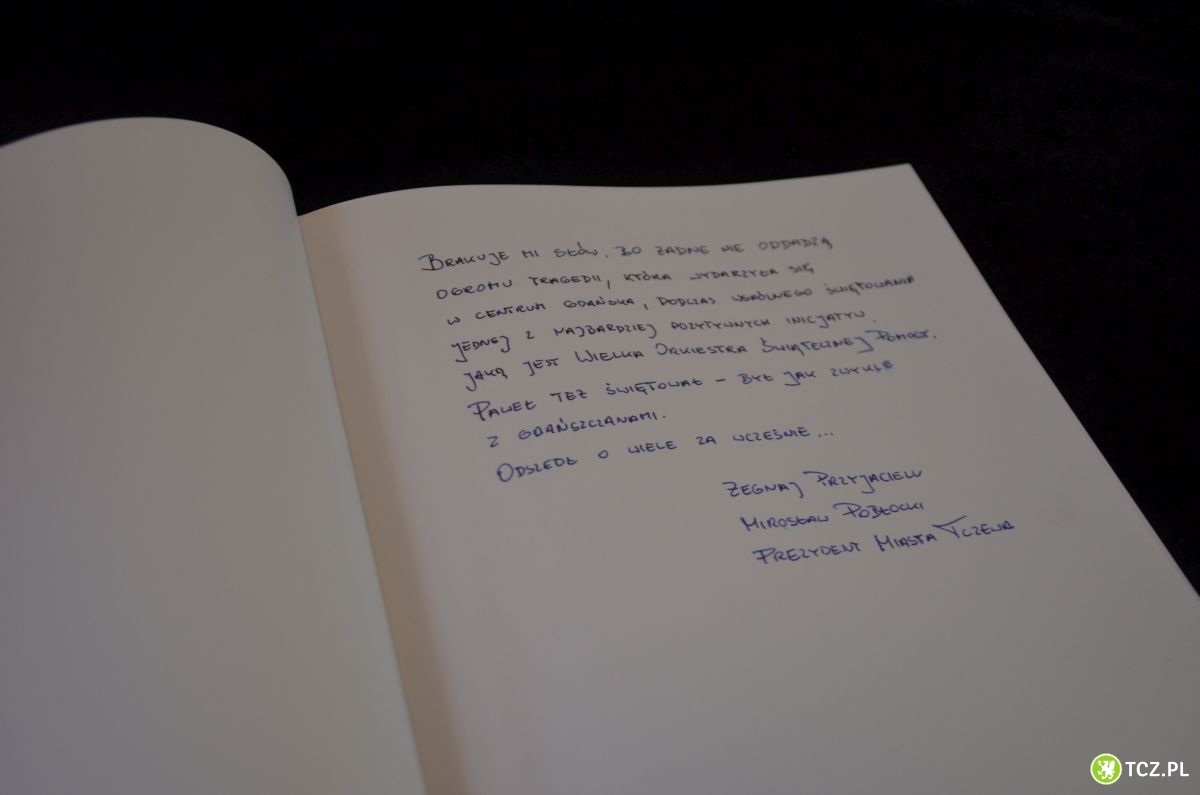 Brakuje mi słów, bo żadne nie oddadzą
ogromu tragedii, która wydarzyła się
w centrum Gdańska, podczas wspólnego świętowania
jednej z najbardziej pozytywnych inicjatyw.
jaką jest Wielka Orkiestra Świątecznej Pomocy.
Paweł też świętował – był jak zwykle
z gdańszczanami.
Odszedł o wiele za wcześnie...
Żegnaj Przyjacielu
Mirosław Pobłocki
Prezydent Miasta Tczewa
TCZ.PL